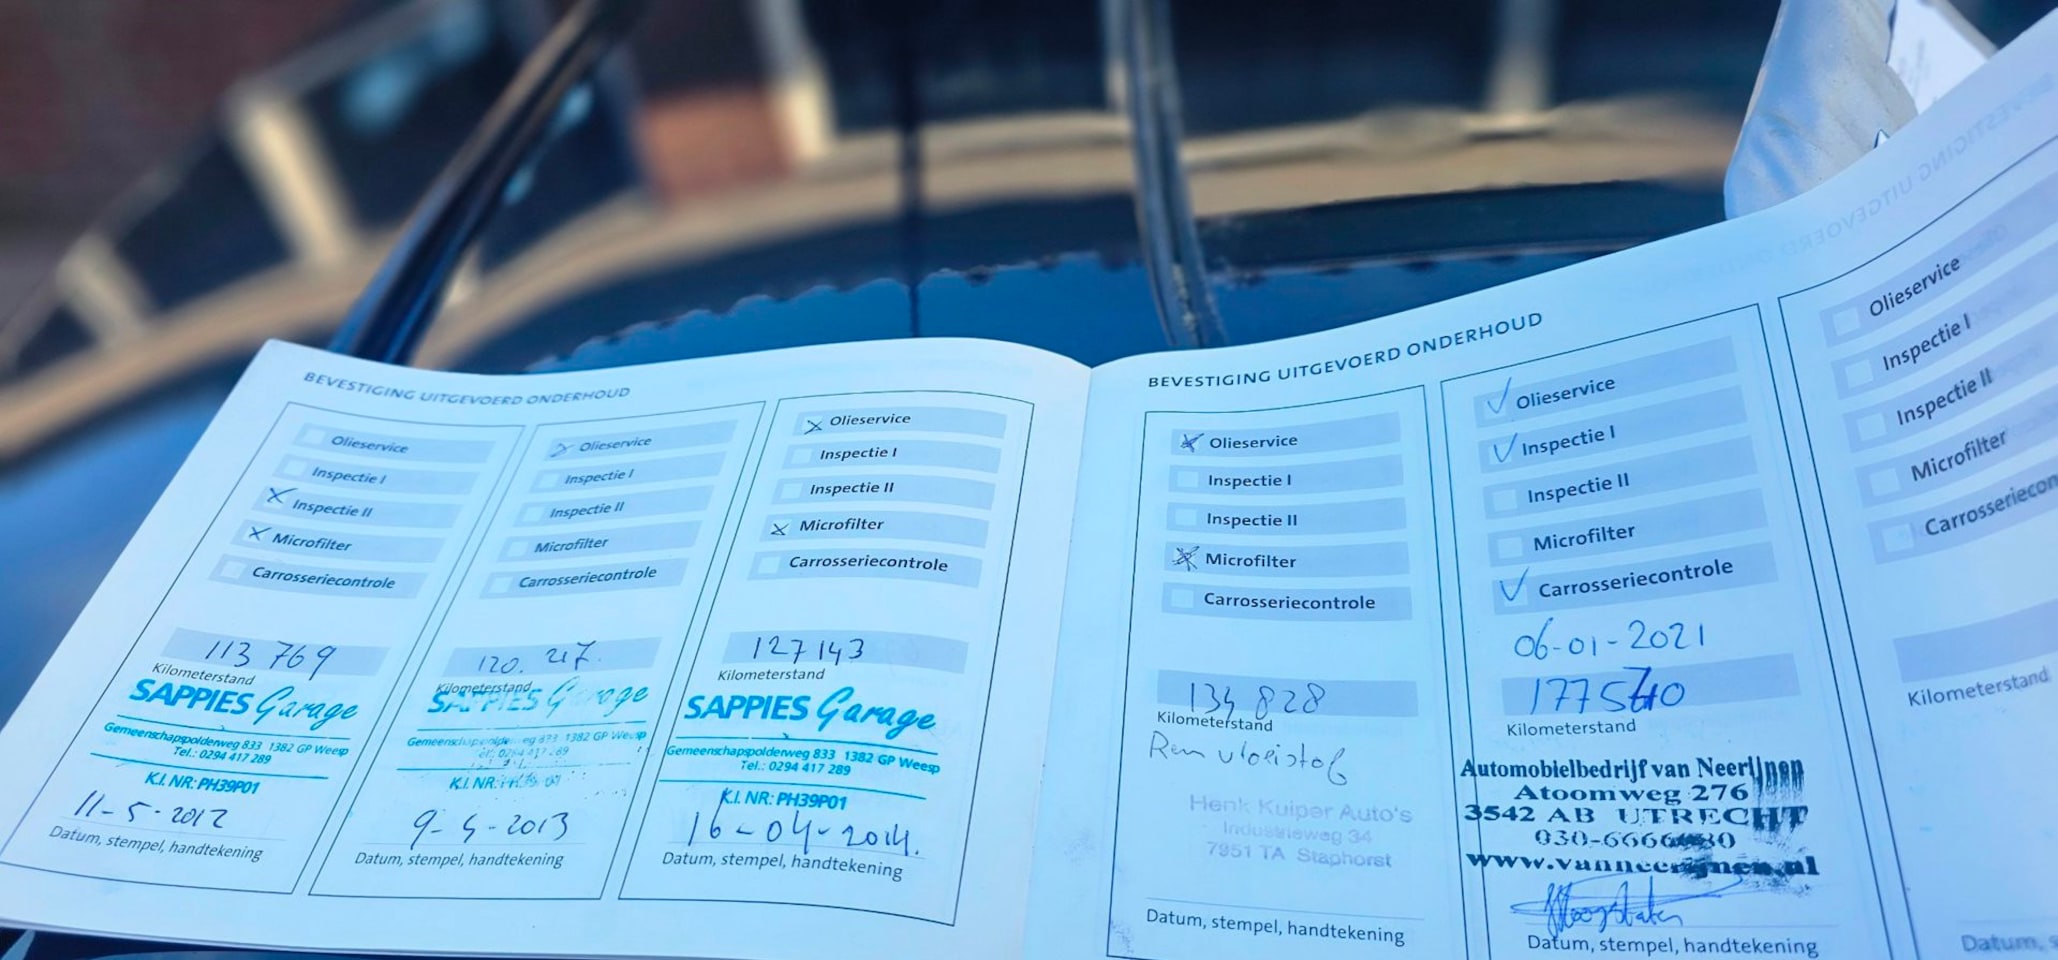 BEVESTIGING UITGEVOERD ONDERHOUD
Olieservice
Inspectie I
Inspectie II
Microfilter
Carrosseriecontrole
113 769
Kilometerstand
SAPPIES Garage
Gemeenschapspolderweg 833 1382 GP Weesp
Tel.: 0294 417 289
K.I. NR: PH39P01
11-5-2012
Datum, stempel, handtekening
Olieservice
Inspectie I
Inspectie II
Microfilter
Carrosseriecontrole
120.217.
Kilometerstand
SAPPIES Garage
Gemeenschapspolderweg 833 1382 GP Weesp
Tel.: 0294 417 289
K.I. NR: PH39P01
2013
Datum, stempel, handtekening
Olieservice
Inspectie I
Inspectie II
Microfilter
Carrosseriecontrole
127143
Kilometerstand
SAPPIES Garage
Gemeenschapspolderweg 833 1382 GP Weesp
Tel.: 0294 417 289
K.I. NR: PH39P01
16-04-2014.
Datum, stempel, handtekening
BEVESTIGING UITGEVOERD ONDERHOUD
Olieservice
Inspectie I
Inspectie II
Microfilter
Carrosseriecontrole
134 828
Kilometerstand
Rem vloeistof
Henk Kuiper Auto's
Industrieweg 34
7951 TA Staphorst
Datum, stempel, handtekening
Olieservice
Inspectie I
Inspectie II
Microfilter
Carrosseriecontrole
06-01-2021
177540
Kilometerstand
Automobielbedrijf van Neerijnen
Atoomweg 276
3542 AB UTRECHT
www.vanneerijnen.nl
Datum, stempel, handtekening
Olieservice
Inspectie I
Inspectie II
Microfilter
Carrosseriecon
Kilometerstand
Datum, s